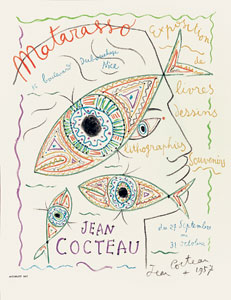 Matarasso
Exposition
de
boulevard Dubouchage
Nice
livres
dessins
lithographies
souvenirs
JEAN
COCTEAU
du 27 Septembre
au
31 octobre
Jean Cocteau
1957